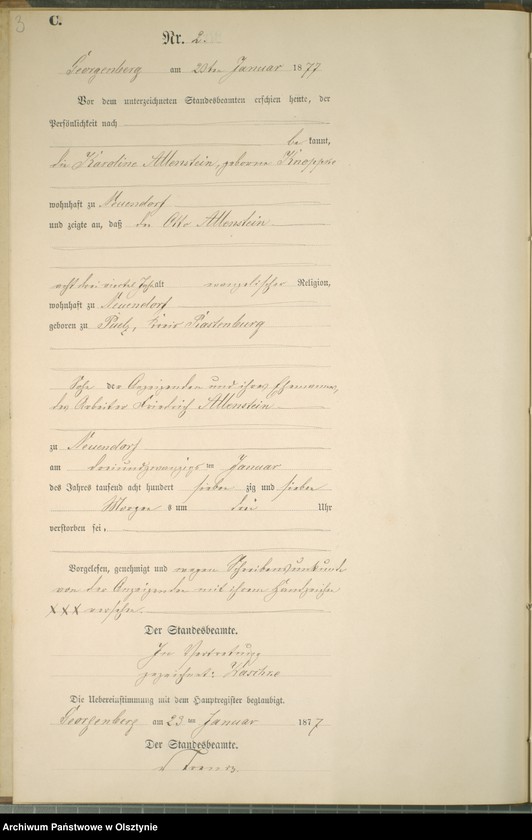 3
C.
Nr. 2.
Georgenberg am 20ten Januar 1877
Vor dem unterzeichneten Standesbeamten erschien heute, der
Persönlichkeit nach
be kannt,
die Karoline Allenstein, geborene Knoppke
wohnhaft zu Neuendorf
und zeigte an, daß der Otto Allenstein
acht drei viertel Jahr alt evangelischer Religion,
wohnhaft zu Neuendorf
geboren zu Pülz, Kreis Rastenburg
Sohn der Anzeigenden und ihres Ehemannes,
des Arbeiter Friedrich Allenstein
zu Neuendorf
am ten Januar
des Jahres tausend acht hundert sieben zig und sieben
Morgen s um drei Uhr
verstorben sei.
Vorgelesen, genehmigt und wegen Schreibensunkunde
von der Anzeigenden mit ihrem Handzeichen
XXX versehen.
Der Standesbeamte.
In Vertretung
gezeichnet:
Die Uebereinstimmung mit dem Hauptregister beglaubigt.
Georgenberg am 23 ten Januar 1877
Der Standesbeamte.
Archiwum Państwowe w Olsztynie